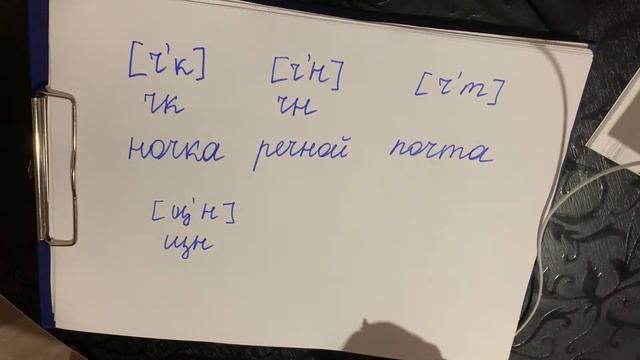 [ч'к] [ч'н] [ч'т]
чк чн
ночка речной почта
[щ'н]
щн